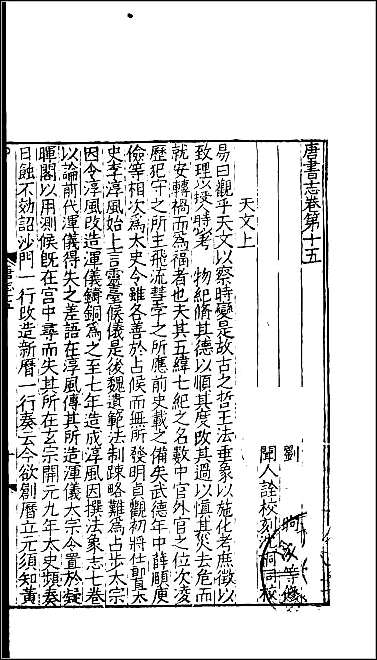 唐書志卷第十五
劉昫等修
聞人詮校刻沈桐同校
天文上
易曰觀乎天文以察時變是故古之哲王法垂象以施化考庶徵以
致理以授人時考物紀脩其德以順其度改其過以慎其災去危而
就安轉禍而為福者也夫其五緯七紀之名數中官外官之位次凌
歷犯守之所主飛流彗孛之所應前史載之備矣武德年中薛頤庾
儉等相次為太史令雖各善於占候而無所發明貞觀初將仕郎直太
史李淳風始上言靈臺候儀是後魏遺範法制疎略難為占步太宗
因令淳風改造渾儀鑄銅為之至七年造成淳風因撰法象志七卷
以論前代渾儀得失之差語在淳風傳其所造渾儀太宗令置於凝
暉閣以用測候既在宮中尋而失其所在玄宗開元九年太史頻奏
日蝕不効詔沙門一行改造新曆一行奏云今欲創曆立元須知黃